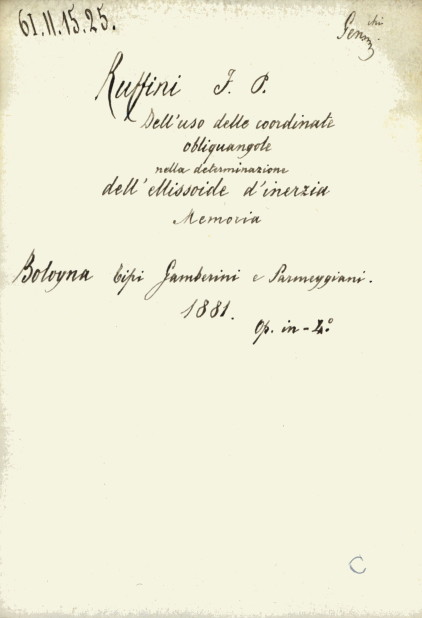 61.II.15.25.
Genocchi
Ruffini F. P.
Dell'uso delle coordinate
obliquangole
nella determinazione
dell'ellissoide d'inerzia
Memoria
Bologna tipi Gamberini e Parmeggiani.
1881.
Op. in-4º
C